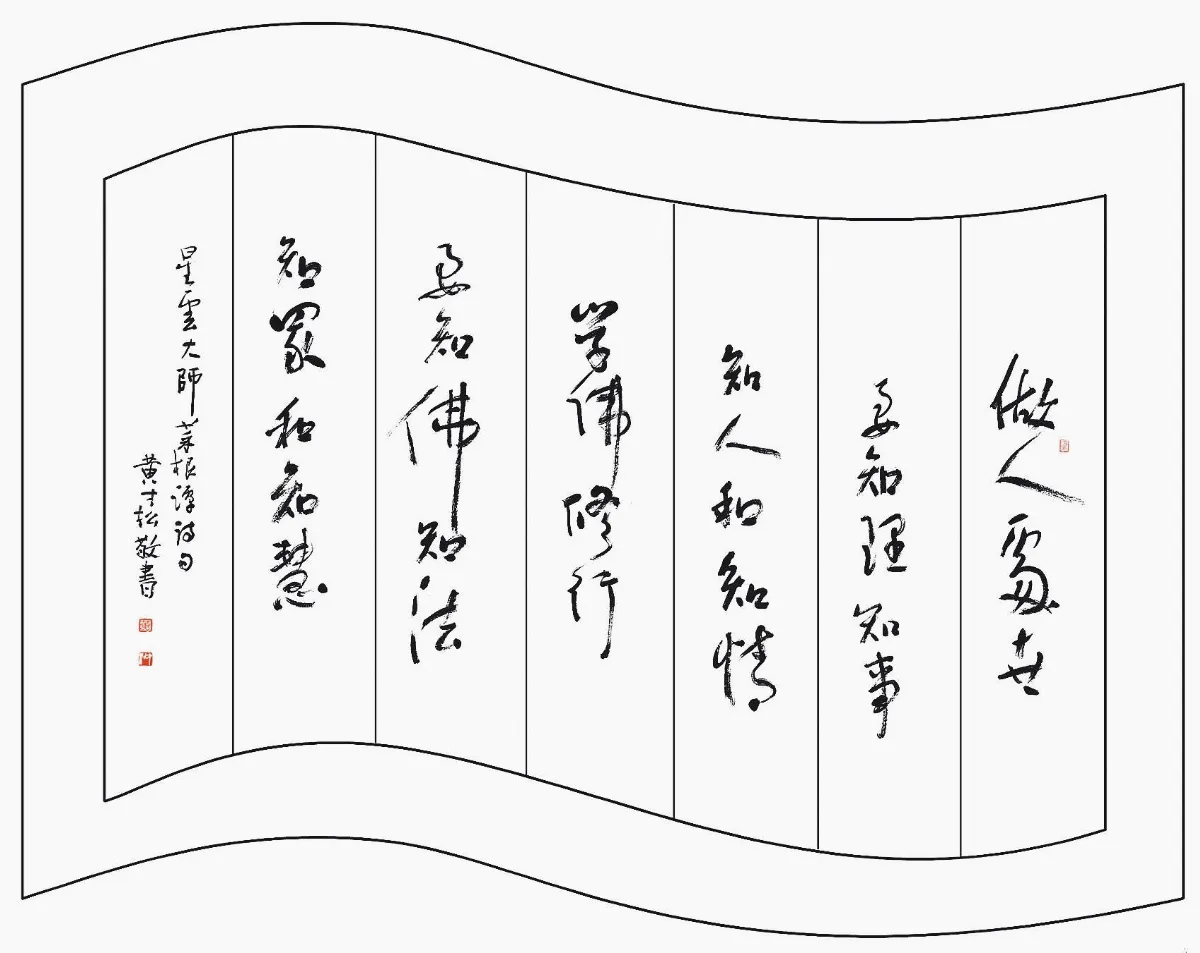 做人處世
要知理知事
知人和知情
学佛修行
要知佛知法
知眾和知慧
星雲大師菜根譚詩句
黄才松敬書